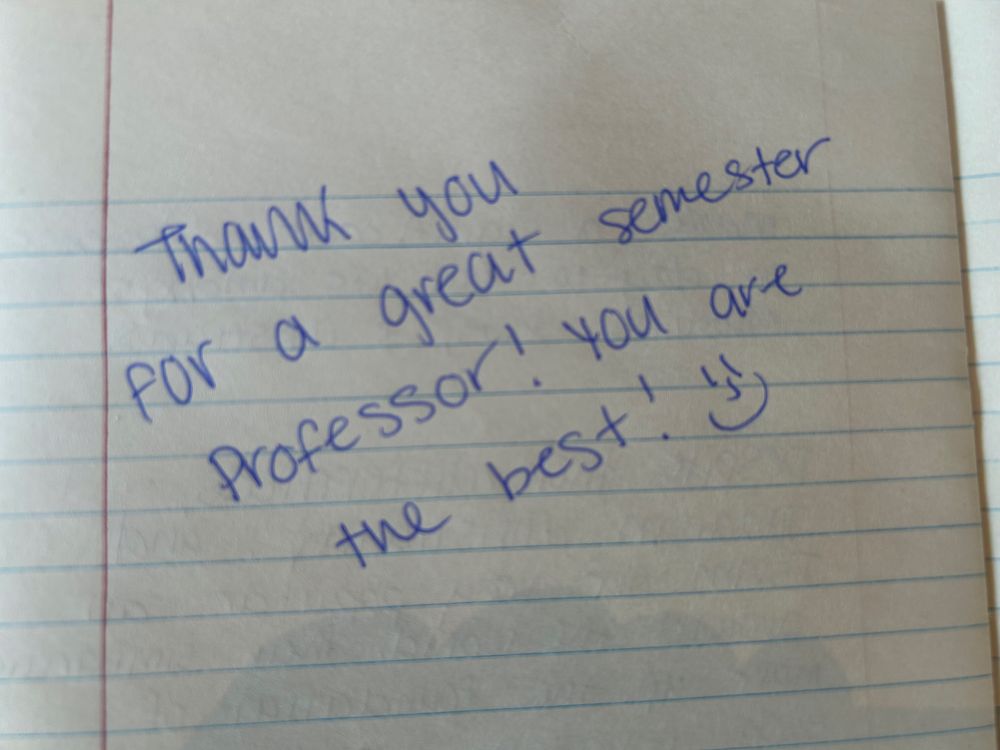 Thank you
for a great semester
Professor! You are
the best! :)